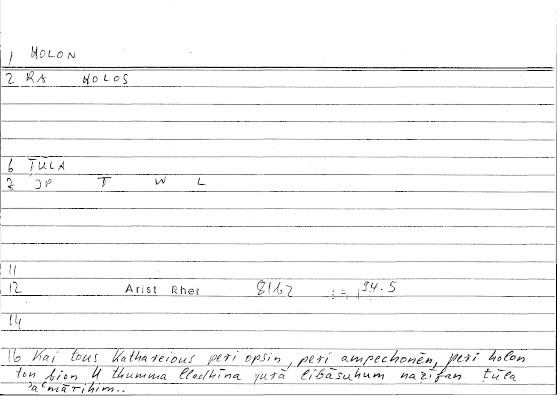 1 HOLON
2 RA HOLOS
6 ṬULA
7 JP Ṭ W L
11
12 Arist Rhet 81b2
14
16 Kai tous kathareious peri opsin, peri ampechonēn, peri holon
ton bion H thumma lladhīna yurā libāsuhum naẓīfan ṭūla
'aʿmārihim..